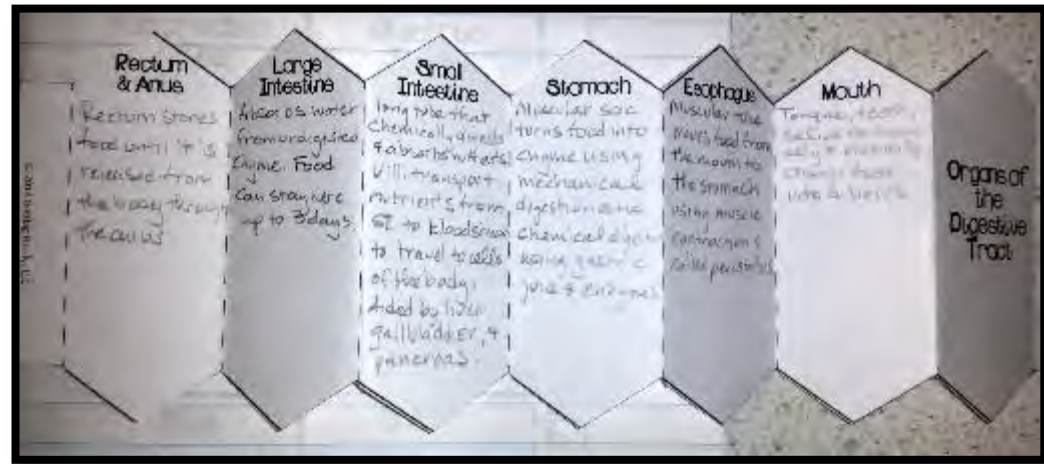 Rectum
& Anus
Rectum stores
food until it is
release from
the body through
the anus
Large
Intestine
Absorbs water
from undigested
Chyme. Food
Can stay here
up to 3 days.
Small
Intestine
long tube that
Chemically digests
& absorbs nutrients
Villi transport
nutrients from
SI to bloodstream
to travel to cells
of the body.
Aided by liver
gallbladder, &
pancreas.
Stomach
Muscular sac
turns food into
chyme using
mechanical
digestion and
Chemical digestion
using gastric
juice & enzymes
Esophagus
Muscular tube
moves food from
the mouth to
the stomach
using muscle
contractions
called peristalsis
Mouth
Tongue, teeth,
saliva
change food
into a bolus
Organs of
the
Digestive
Tract